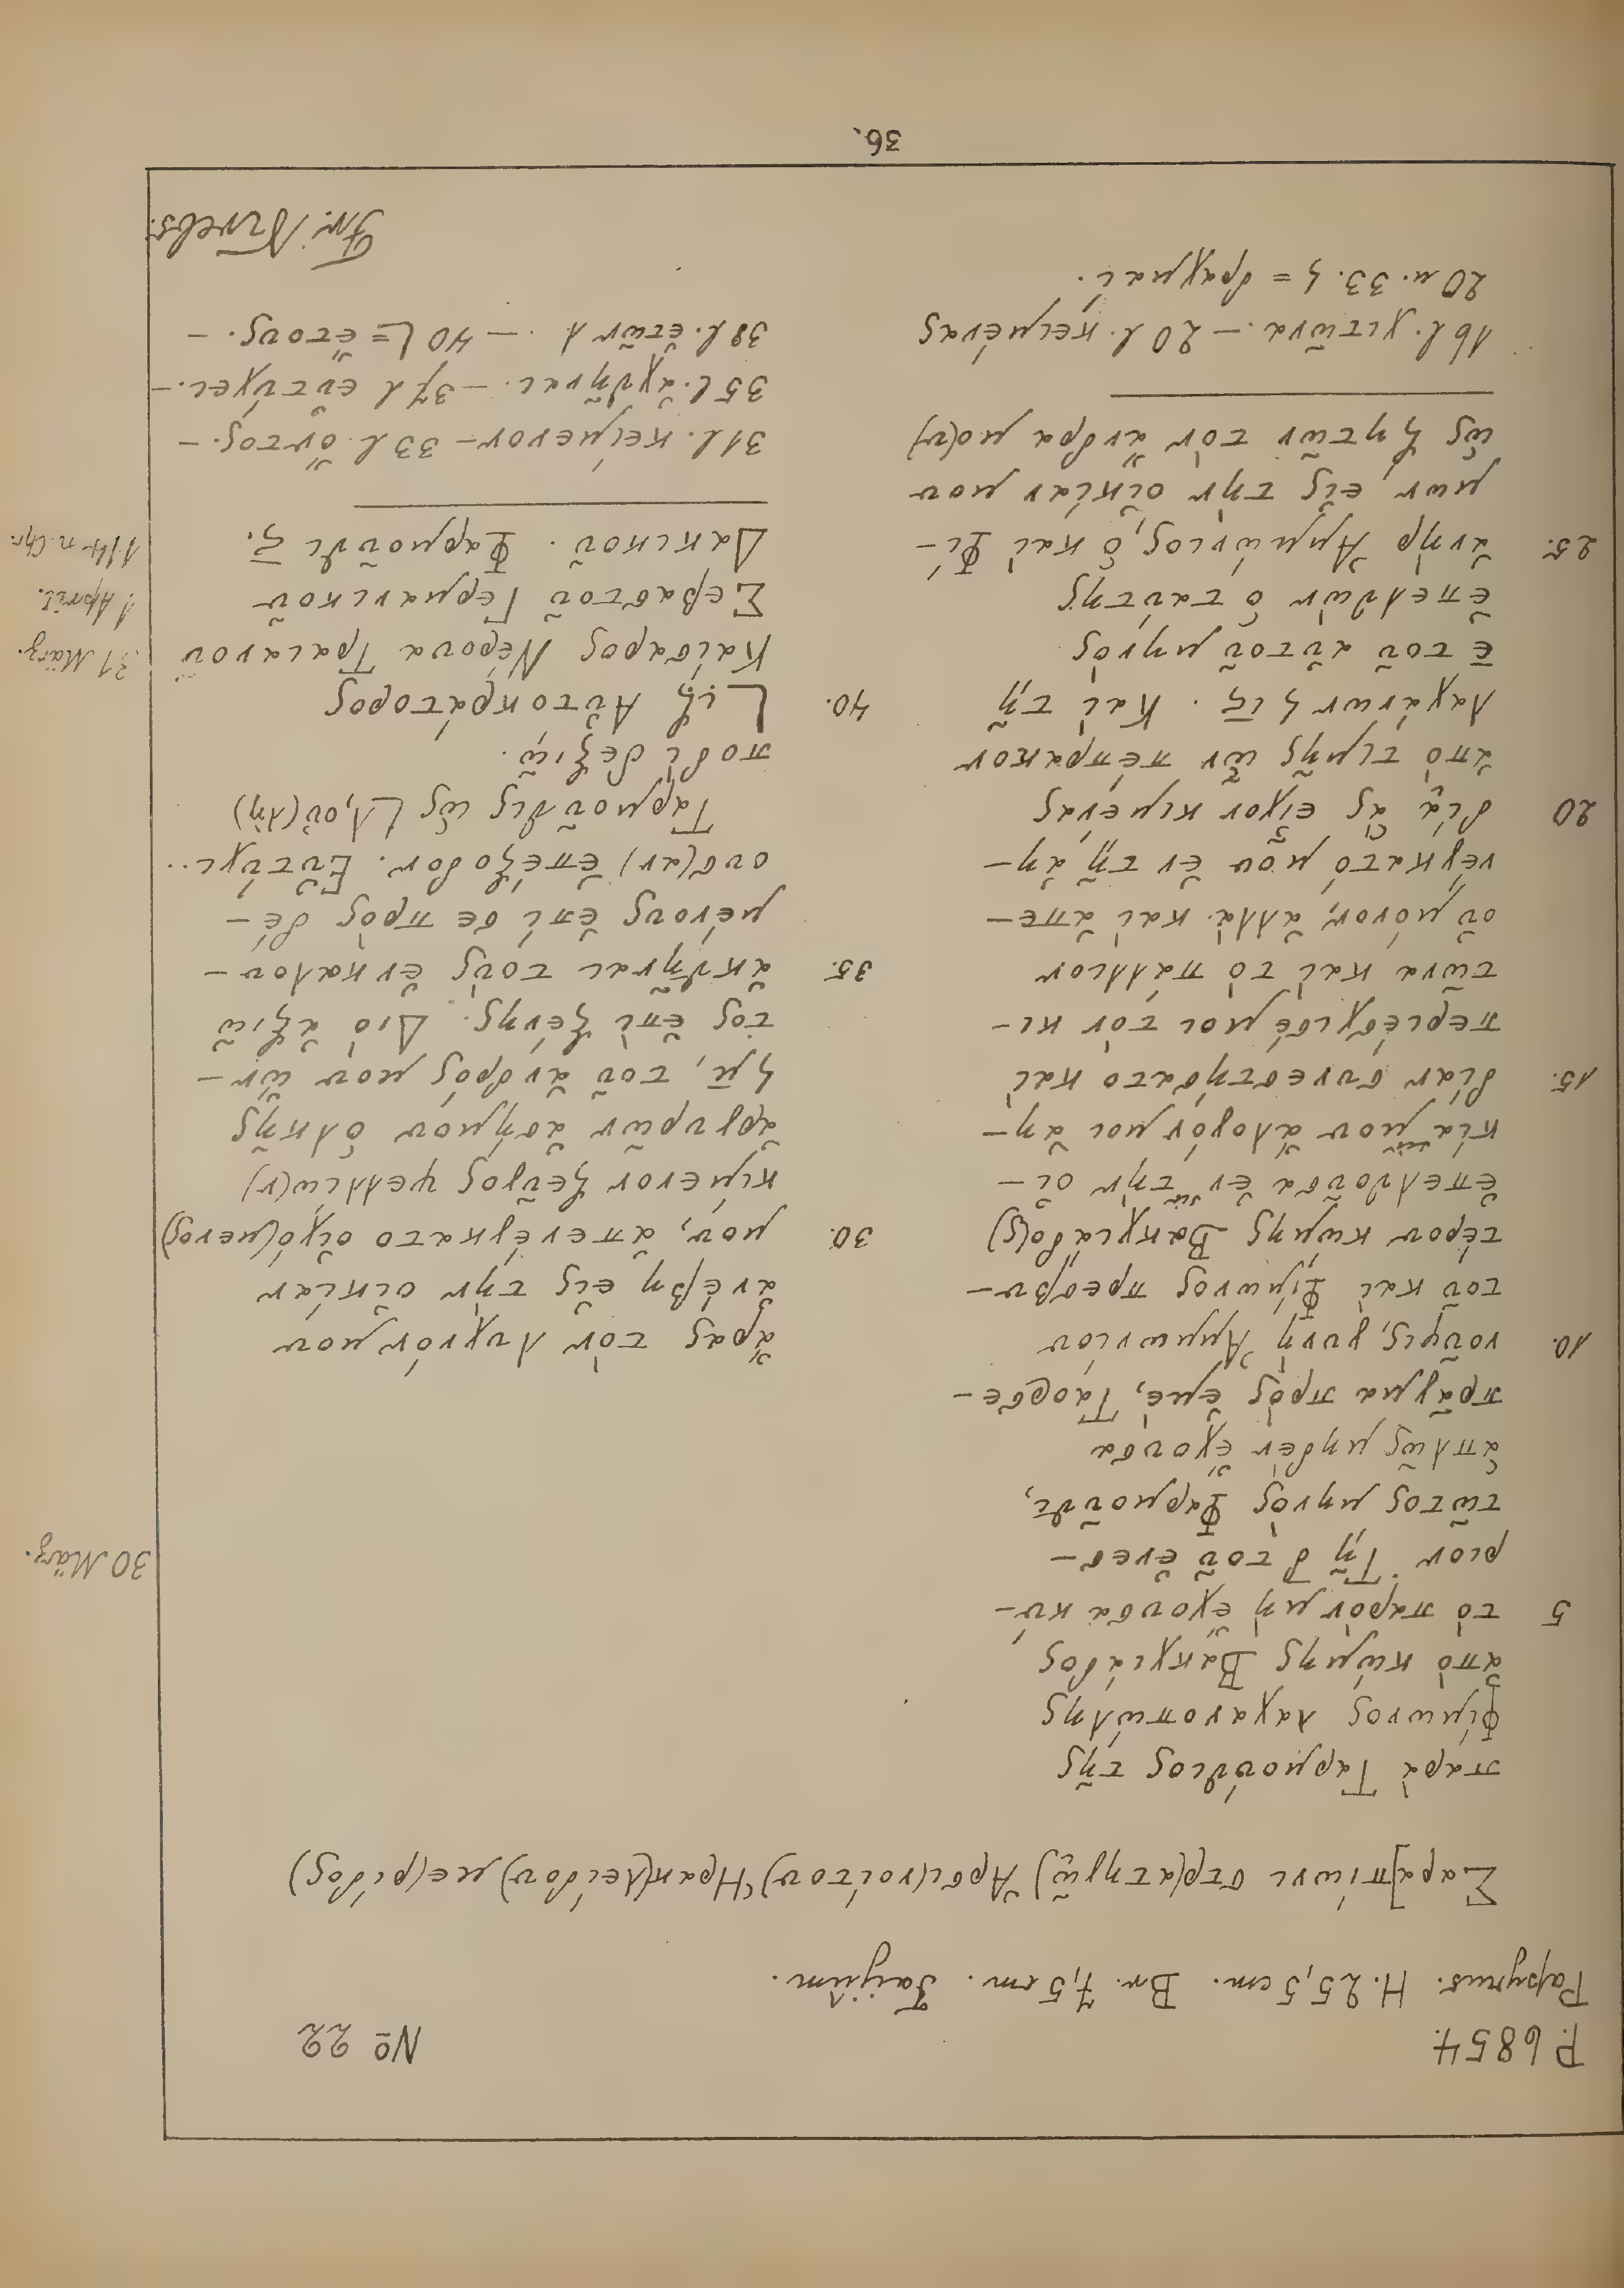 P. 6854. № 22
Papyrus. H. 25,5 cm. Br. 7,5 cm. Faijûm.
Σαρα]πίωνι στρ(ατηγῷ) Ἀρσι(νοίτου) Ἡρακ(λείδου) με(ρίδος)
παρὰ Ταρμούθιος τῆς
Φίμωνος λαχανοπώλης
ἀπὸ κώμης Βακχιάδος
5 τὸ παρὸν μὴ ἔχουσα κύ-
ριον. Τῇ δ τοῦ ἐνεσ-
30 März.
τῶτος μηνὸς Φαρμοῦθι,
ἁπλῶς μηδὲν ἔχουσα
πρᾶγμα πρὸς ἐμέ, Ταορσε-
10. νοῦφις, γυνὴ Ἀμμωνίου
τοῦ καὶ Φίμωνος πρεσβυ-
τέρου κώμης Βακχιάδο(ς)
ἐπελθοῦσα ἐν τὴν οἰ-
κίᾳ μου ἄλογόν μοι ἀη-
15. δίαν συνεστήσατο καὶ
περιέσχισέ μοι τὸν κι-
τῶνα καὶ τὸ πάλλιον
οὐ μόνον, ἀλλὰ καὶ ἀπε-
νέγκατό μου ἐν τῇ ἀη-
20 δίᾳ ἃς εἶχον κιμένας
ἀπὸ τιμῆς ὧν πέπρακον
λαχάνων ϛ ις. Καὶ τῇ
ε τοῦ αὐτοῦ μηνὸς
ἐπελθὼν ὁ ταύτης
25. ἀνὴρ Ἀμμώνιος, ὁ καὶ Φί-
μων, εἰς τὴν οἰκίαν μου
ὡς ζητῶν τὸν ἄνδρα μο(υ)
16 l. χιτῶνα. — 20 l. κειμένας
20 u. 33. ϛ = δραχμαί.
ἄρας τὸν λυχνόν μου
ἀνέβη εἰς τὴν οἰκίαν
30. μου, ἀπενέγκατο οἰχό(μενος)
κιμενον ζεῦγος ψελλίω(ν)
ἀργυρῶν ἀσήμου ὁλκῆς
ϛ μ, τοῦ ἀνδρός μου ὤν-
τος ἐπὶ ξένης. Διὸ ἀξιῶ
35. ἀκθῆναι τοὺς ἐνκαλου-
μένους ἐπὶ σε πρὸς δέ-
ουσ(αν) ἐπέξοδον. Εὐτύχι...
Ταρμοῦθις ὡς L λ, οὐ(λὴ)
ποδὶ δεξιῷ.
40. L ιζ Αὐτοκράτορος
Καίσαρος Νέρουα Τραιανοῦ
31 März.
Σεβαστοῦ Γερμανικοῦ
1 April.
Δακικοῦ. Φαρμοῦθι ϛ.
114 n. Chr.
31 l. κείμενον — 33 l. ὄντος. —
35 l. ἀχθῆναι. — 37 l εὐτύχει. —
38 l. ἐτῶν λ. — 40 L = ἔτους. —
Fr. Krebs.
36.